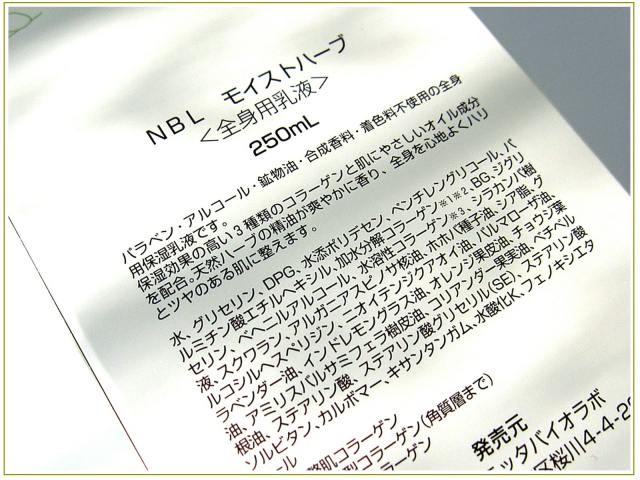 NBL モイストハーブ
＜全身用乳液＞
250mL
パラベン・アルコール・鉱物油・合成香料・着色料不使用の全身
用保湿乳液です。
保湿効果の高い3種類のコラーゲンと肌にやさしいオイル成分
を配合。天然ハーブの精油が爽やかに香り、全身を心地よくハリ
とツヤのある肌に整えます。
水、グリセリン、DPG、水添ポリデセン、ペンチレングリコール、パ
ルミチン酸エチルヘキシル、加水分解コラーゲン※1※2、BG、ジグリ
セリン、ベヘニルアルコール、水溶性コラーゲン※3、シラカンバ樹
液、スクワラン、アルガニアスピノサ核油、ホホバ種子油、シア脂、グ
ルコシルヘスペリジン、ニオイテンジクアオイ油、パルマローザ油、
ラベンダー油、インドレモングラス油、オレンジ果皮油、チョウジ葉
油、アミリスバルサミフェラ樹皮油、コリアンダー果実油、ベチベル
根油、ステアリン酸、ステアリン酸グリセリル(SE)、ステアリン酸
ソルビタン、カルボマー、キサンタンガム、水酸化K、フェノキシエタ
ール
肌コラーゲン
型コラーゲン(角質層まで)
ラーゲン
発売元
ニッタバイオラボ
区桜川4-4-2